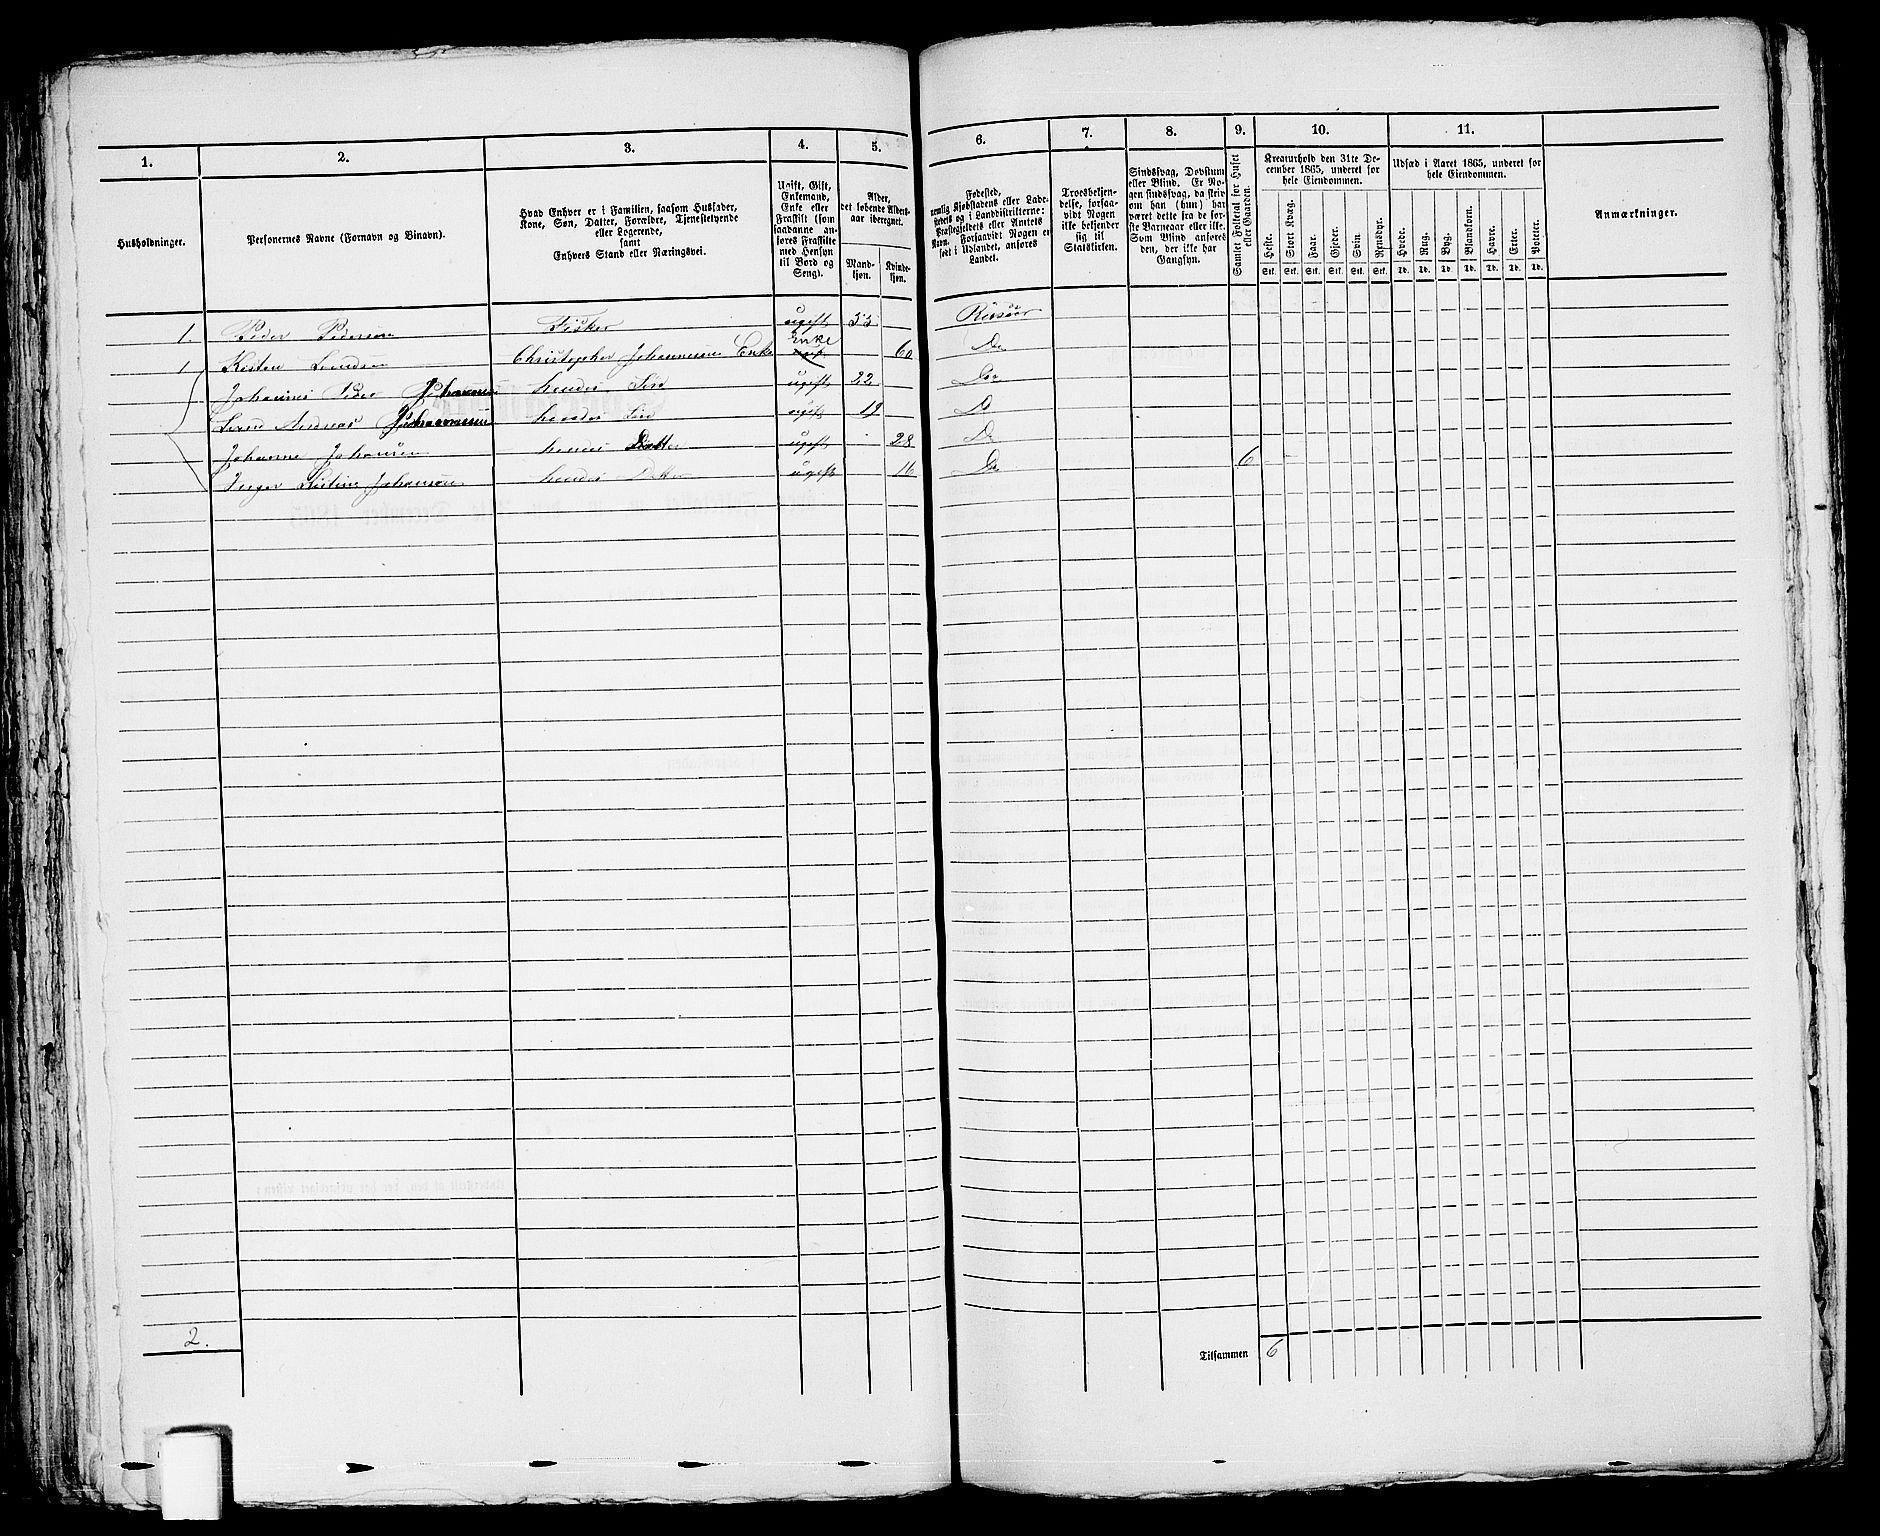 1. 2. 3. 4. 5. 6. 7. 8. 9. 10. 11.
Husholdninger.
Personernes Navne (Fornavn og Binavn).
Hvad Enhver er i Familien, saasom Husfader,
Kone, Søn, Datter, Forældre, Tjenestetyende
eller Logerende,
samt
Enhvers Stand eller Næringsvei.
Ugift, Gift,
Enkemand,
Enke eller
Fraskilt (som
saadanne an-
føres Fraskilte
med Hensyn
til Bord og
Seng).
Alder,
det løbende Alders-
aar iberegnet.
Mand-
kjøn.
Kvinde-
kjøn.
Fødested,
nemlig Kjøbstadens eller Lade-
stedets og i Landdistrikterne:
Præstegjeldets eller Amtets
Navn. Forsaavidt Nogen er
født i Udlandet, anføres
Landet.
Troesbekjen-
delse, forsaa-
vidt Nogen
ikke bekjender
sig til
Statskirken.
Sindssvag, Døvstum
eller Blind. Er No-
gen sindssvag, da skriv
om han (hun) har
været dette fra de før-
ste Barneaar eller ikke.
Som Blind anføres
den, der ikke har
Gangsyn.
Samlet Folketal for Huset
eller Gaarden.
Kreaturhold den 31te De-
cember 1865, underet for
hele Eiendommen.
Heste. Stort Kvæg. Faar. Gjeder. Svin. Rensdyr.
Stk. Stk. Stk. Stk. Stk. Stk.
Udsæd i Aaret 1865, underet for
hele Eiendommen.
Hvede. Rug. Byg. Blandkorn. Havre. Erter. Poteter.
Td. Td. Td. Td. Td. Td. Td.
Anmærkninger.
1. Peder Pedersen Fisker ugift 33 Risøer
1 Kisten Svendsen Christopher Johannesens Enke Enke 60 Do
Johannes Peder Johannesen hendes Søn ugift 22 Do
Svend Andreas Johannesen hendes Søn ugift 19 Do
Johanne Johansen hendes Datter ugift 28 Do
Inger Kistine Johansen hendes Datter ugift 16 Do 6
2.
Tilsammen 6